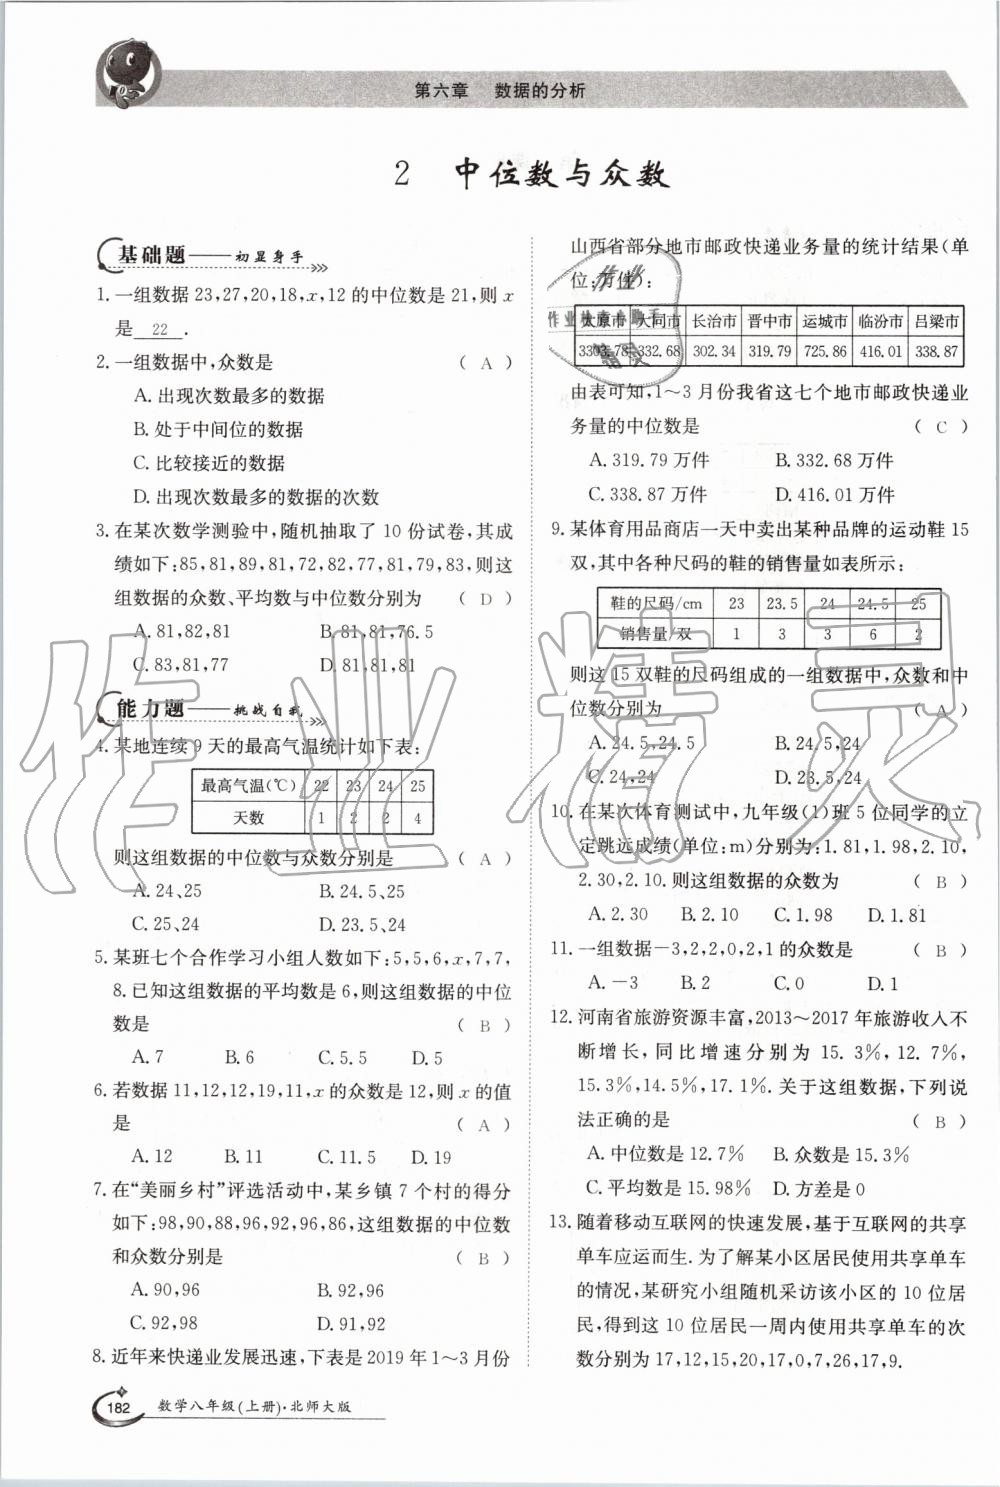 第六章 数据的分析
2 中位数与众数
基础题——初显身手
1. 一组数据 23,27,20,18,x,12 的中位数是 21,则 x
是 22 .
2. 一组数据中,众数是 ( A )
A. 出现次数最多的数据
B. 处于中间位的数据
C. 比较接近的数据
D. 出现次数最多的数据的次数
3. 在某次数学测验中,随机抽取了 10 份试卷,其成
绩如下:85,81,89,81,72,82,77,81,79,83,则这
组数据的众数、平均数与中位数分别为 ( D )
A. 81,82,81 B. 81,81,76.5
C. 83,81,77 D. 81,81,81
能力题——挑战自我
4. 某地连续 9 天的最高气温统计如下表:
最高气温(℃) 22 23 24 25
天数 1 2 2 4
则这组数据的中位数与众数分别是 ( A )
A. 24、25 B. 24.5、25
C. 25、24 D. 23.5、24
5. 某班七个合作学习小组人数如下:5,5,6,x,7,7,
8. 已知这组数据的平均数是 6,则这组数据的中位
数是 ( B )
A. 7 B. 6 C. 5.5 D. 5
6. 若数据 11,12,12,19,11,x 的众数是 12,则 x 的值
是 ( A )
A. 12 B. 11 C. 11.5 D. 19
7. 在“美丽乡村”评选活动中,某乡镇 7 个村的得分
如下:98,90,88,96,92,96,86,这组数据的中位数
和众数分别是 ( B )
A. 90,96 B. 92,96
C. 92,98 D. 91,92
8. 近年来快递业发展迅速,下表是 2019 年 1～3 月份
182 数学八年级(上册)·北师大版
山西省部分地市邮政快递业务量的统计结果(单
位:万件):
太原市 大同市 长治市 晋中市 运城市 临汾市 吕梁市
3303.78 332.68 302.34 319.79 725.86 416.01 338.87
由表可知,1～3 月份我省这七个地市邮政快递业
务量的中位数是 ( C )
A. 319.79 万件 B. 332.68 万件
C. 338.87 万件 D. 416.01 万件
9. 某体育用品商店一天中卖出某种品牌的运动鞋 15
双,其中各种尺码的鞋的销售量如表所示:
鞋的尺码/cm 23 23.5 24 24.5 25
销售量/双 1 3 3 6 2
则这 15 双鞋的尺码组成的一组数据中,众数和中
位数分别为 ( A )
A. 24.5,24.5 B. 24.5,24
C. 24,24 D. 23.5,24
10. 在某次体育测试中,九年级(1)班 5 位同学的立
定跳远成绩(单位:m)分别为:1.81,1.98,2.10,
2.30,2.10. 则这组数据的众数为 ( B )
A. 2.30 B. 2.10 C. 1.98 D. 1.81
11. 一组数据－3,2,2,0,2,1 的众数是 ( B )
A. －3 B. 2 C. 0 D. 1
12. 河南省旅游资源丰富,2013～2017 年旅游收入不
断增长,同比增速分别为 15.3%,12.7%,
15.3%,14.5%,17.1%. 关于这组数据,下列说
法正确的是 ( B )
A. 中位数是 12.7% B. 众数是 15.3%
C. 平均数是 15.98% D. 方差是 0
13. 随着移动互联网的快速发展,基于互联网的共享
单车应运而生. 为了解某小区居民使用共享单车
的情况,某研究小组随机采访该小区的 10 位居
民,得到这 10 位居民一周内使用共享单车的次
数分别为 17,12,15,20,17,0,7,26,17,9.
作业精灵